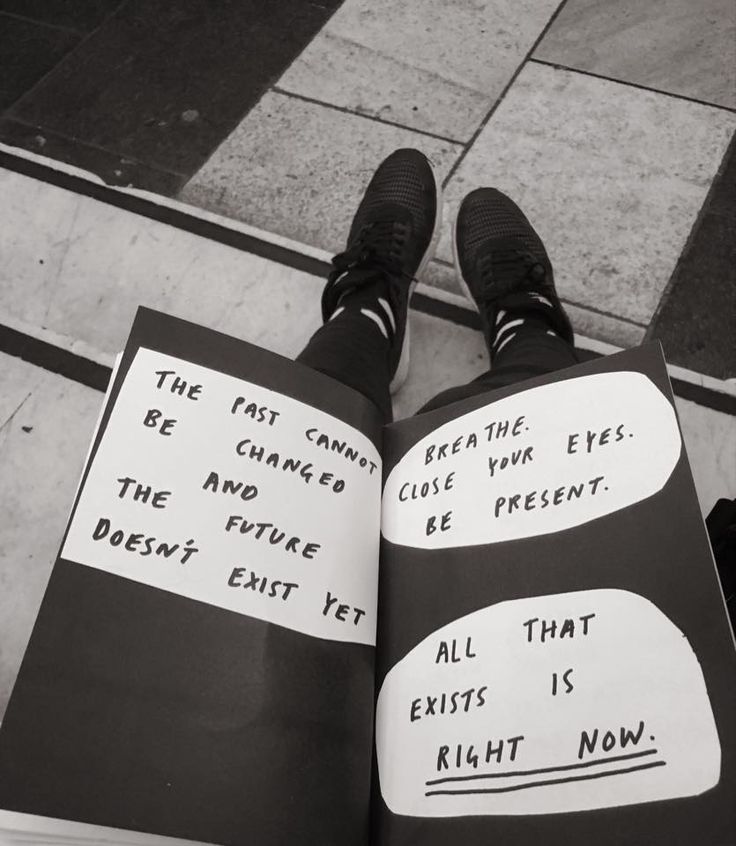 THE PAST CANNOT
BE CHANGED
AND
THE FUTURE
DOESN'T EXIST YET
BREATHE.
CLOSE YOUR EYES.
BE PRESENT.
ALL THAT
EXISTS IS
RIGHT NOW.